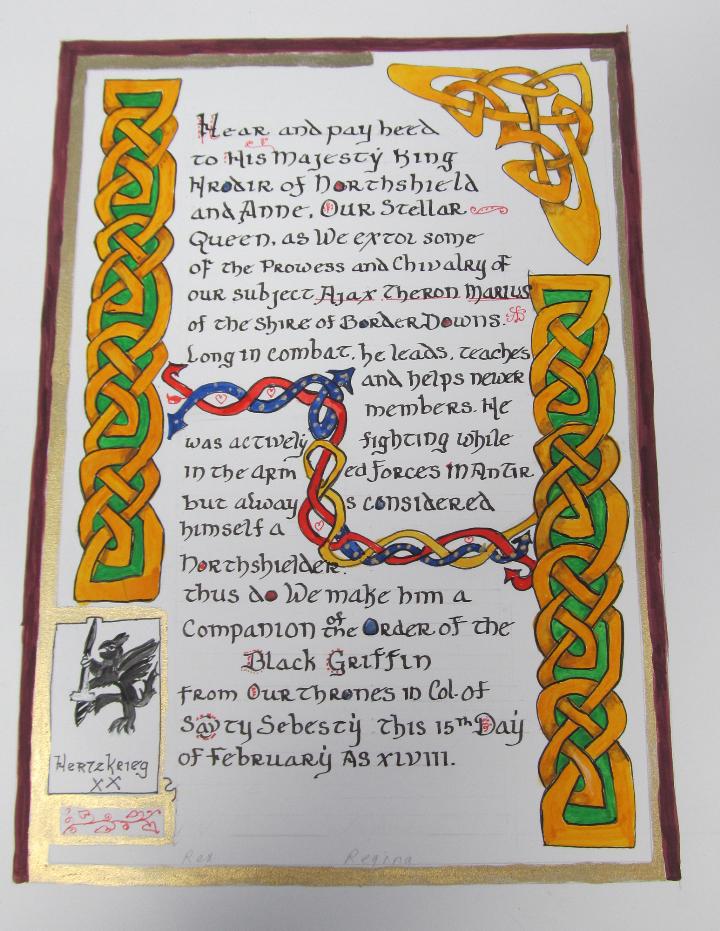 Hear and pay heed
to His Majesty King
Hrodir of Northshield
and Anne, Our Stellar
Queen, as We extol some
of the Prowess and Chivalry of
our subject Ajax Theron Marius
of the Shire of Border Downs.
Long in combat, he leads, teaches
and helps newer
members. He
was actively fighting while
in the Arm ed Forces in Antir
but alway s considered
himself a
Northshielder.
thus do We make him a
Companion of the Order of the
Black Griffin
from Our Thrones in Col. of
Sawty Sebesty this 15th Day
of February AS XLVIII.
Hertzkrieg
XX
Rex Regina